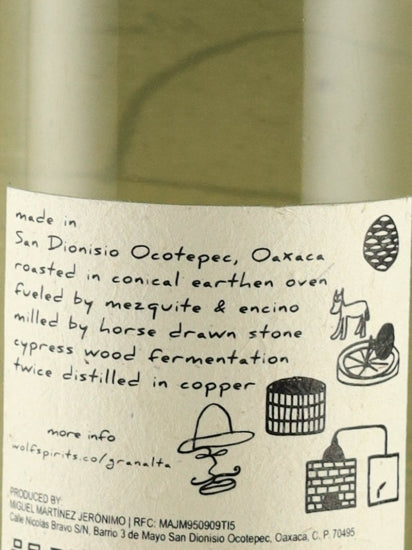 made in
San Dionisio Ocotepec, Oaxaca
roasted in conical earthen oven
fueled by mezquite & encino
milled by horse drawn stone
cypress wood fermentation
twice distilled in copper
more info
wolfspirits.co/granalta
PRODUCED BY:
MIGUEL MARTÍNEZ JERÓNIMO | RFC: MAJM950909TI5
Calle Nicolás Bravo S/N, Barrio 3 de Mayo San Dionisio Ocotepec, Oaxaca, C. P. 70495